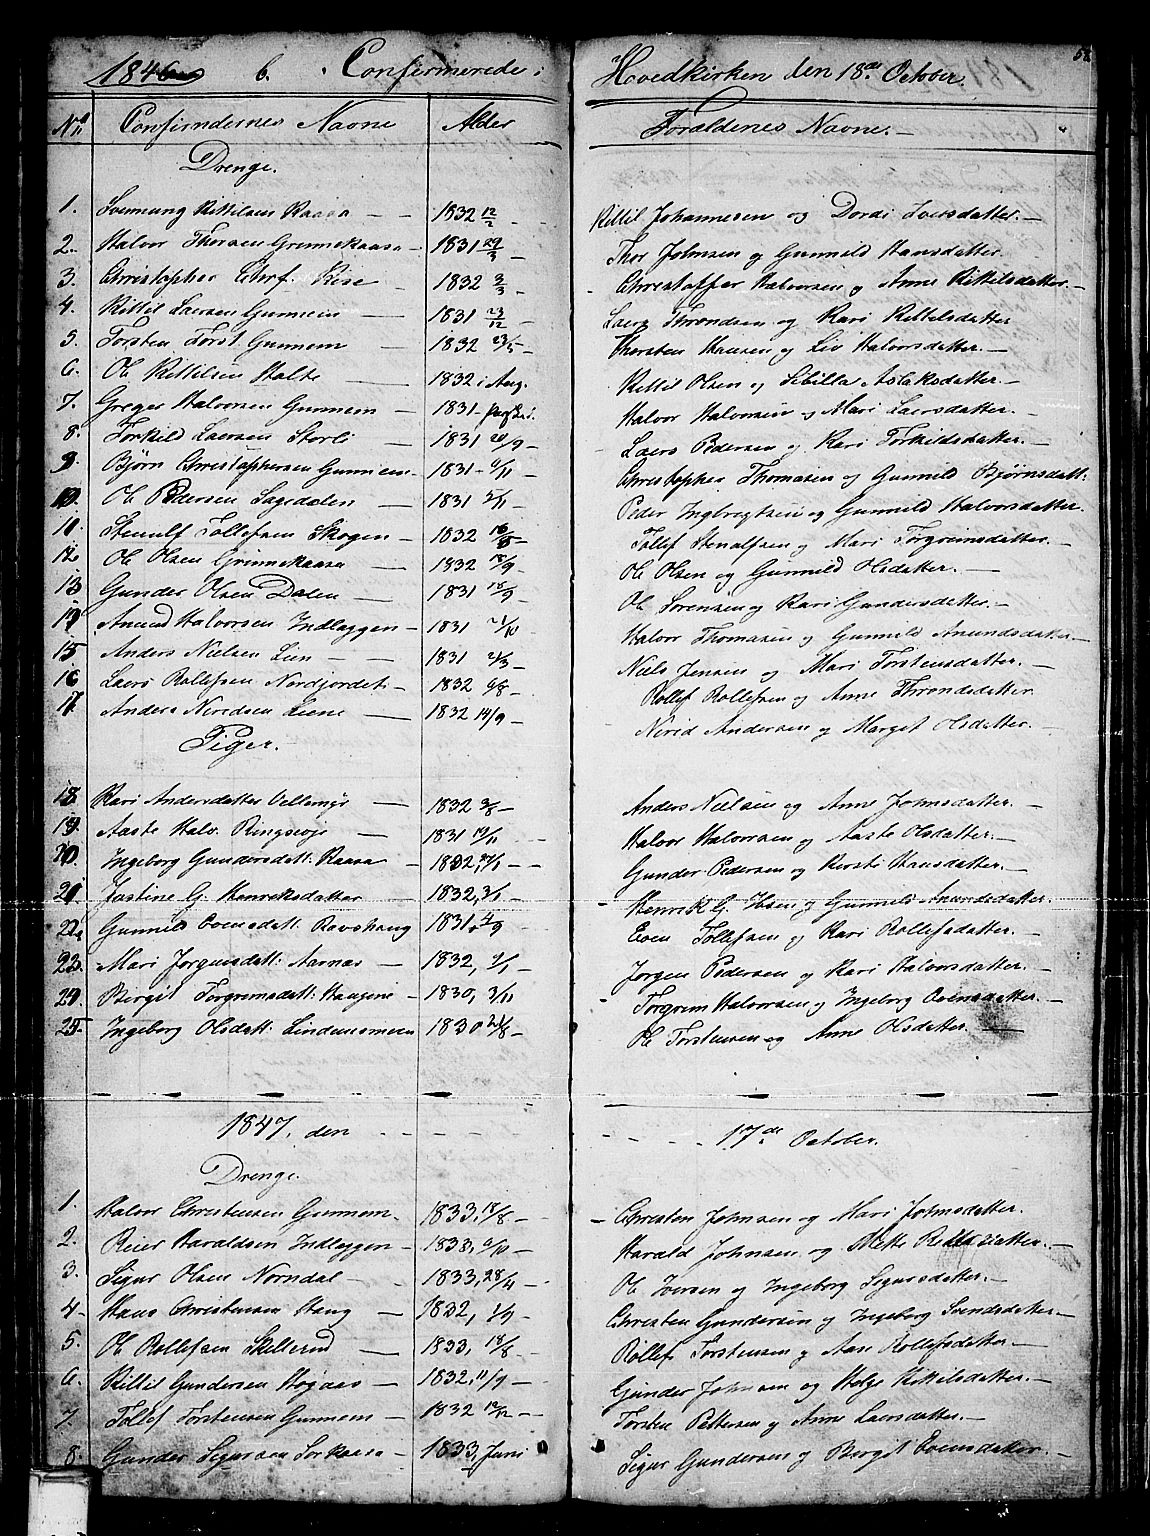 1846 6. Confirmerede i Hovedkirken den 18de October.
58
No Confirmdernes Navne Alder Forældenes Navne.
Drenge.
1. Svennung Kittilsen Raasa 1832 12/2 Kittil Johannesen og Dordi Iversdatter.
2. Halvor Thorsen Grinnekaasa 1831 29/3 Thor Johnsen og Gunnild Hansdatter
3 Christopher Chrf. Riise 1832 3/3 Christoffer Halvorsen og Anne Kittilsdatter
4. Kittil Laersen Gunnem 1831 23/12 Laers Throndsen og Kari Kittelsdatter
5. Torsten Torst. Gunnem 1832 23/5 Thorsten Hansen og Liv Halvorsdatter.
6. Ole Kittilsen Holte 1832 i Aug. Kittil Olsen og Sibilla Aslaksdatter
7. Greger Halvorsen Gunnem 1831 Halvor Halvorsen og Mari Laersdatter.
8. Torkild Laersen Storli 1831 20/9 Laers Pedersen og Kari Torkidsdatter.
9. Bjørn Christophersen Gunnem 1831 Christopher Thomasen og Gunnild Bjørnsdatt:
10. Ole Pedersen Sagedalen 1831 Peder Ingbregtsen og Gunnild Halvorsdatter.
11. Stenulf Tollefsen Skogen 1832 Tollef Stenulfsen og Mari Torgrimsdatter.
12. Ole Olsen Grinnekaasa 1832 18/9 Ole Olsen og Gunnild Olsdatter.
13 Gunder Olsen Dalen 1831 18/9 Ole Sorensen og Kari Gundersdatter.
14 Anund Halvorsen Indlaggen 1831 21/10 Halvor Thomasen og Gunnild Anundsdatter
15 Anders Nielsen Lien 1831 21/3 Niels Jensen og Mari Torstensdatter.
16 Laers Rollefsen Nordjordet 1832 6/8 Rollef Rollefsen og Anne Throndsdatter
17. Anders Neridsen Liene 1832 14/9 Nerid Andersen og Marget Olsdatter.
Piger.
18. Kari Andersdatter 1832 3/8 Anders Nielsen og Anne Johnsdatter.
19. Aaste Halv. Ringsevje 1831 19/11 Halvor Halvorsen og Aaste Olsdatter.
20. Ingeborg Gundersdatt. Raasa 1832, Gunder Pedersen og Kirsti Hansdatter.
21. Jostine G. Henriksdatter 1832, 3/1 Henrik G. og Gunnild Anundsdatter.
22. Gunnild Evensdatt. Ravshaug 1831. 4/9 Even Tollefsen og Kari Rollefsdatter.
23. Mari Jorgensdatt: Aarnæs 1832, Jorgen Pedersen og Kari Halvorsdatter.
24. Bergit Torgrimsdatt: Haugene 1830, 3/11 Torgrim Halvorsen og Ingeborg Evensdatter.
25. Ingeborg Olsdatt: Lindensmeen 1830 21/8 Ole Torstensen og Anne Olsdatter.
1847. den 17de October.
Drenge.
1. Halvor Christensen Gunnem 1833, 18/8 Christen Johnsen og Mari Johnsdatter.
2. Reier Haraldsen Indlaggen 1833, 6/10 Harald Johnsen og Mette
3. Sigur Olsen Norndal 1833, 28/4 Ole Iversen og Ingeborg Sigursdatter.
4. Hans Christensen Haug 1832, 1/9 Christen Gundersen og Ingeborg Svendsdatter.
5. Ole Rollefsen Skellerud 1833, 18/8 Rollef Torstensen og Aase Rollefsdatter.
6. Kittil Gundersen Hogaas 1832, 11/9 Gunder Johnsen og Helge Kittilsdatter.
7. Tollef Torstensen Gunnem 1832 12/12 Torsten Pettersen og Anne Laersdatter.
8. Gunder Sigursen Sorkaasa 1833, Juni Sigur Gundersen og Bergit Evensdatter.